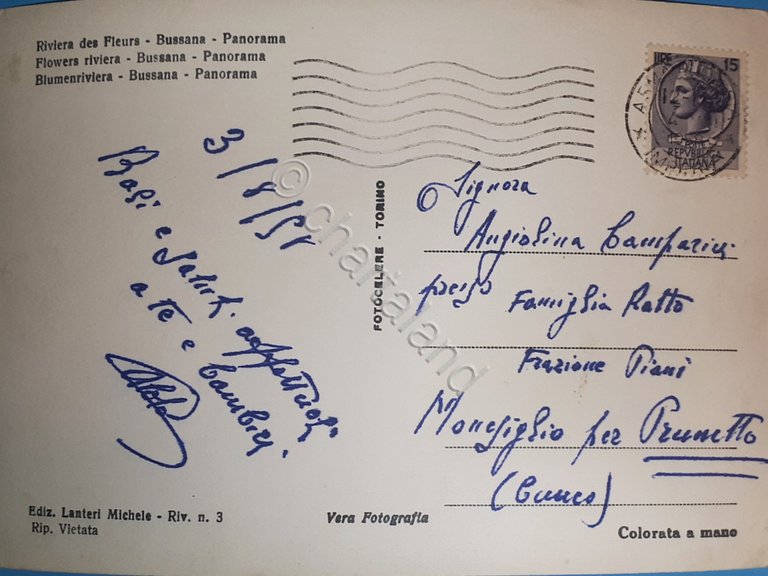 Riviera des Fleurs - Bussana - Panorama
Flowers riviera - Bussana - Panorama
Blumenriviera - Bussana - Panorama
LIRE 15
REPVBBLICA
ITALIANA
3/8/58
Baci e saluti affettuosi
a te e bambini.
FOTOCELERE - TORINO
Signora
Angiolina Camparini
presso Famiglia Ratto
Frazione Piani
Monesiglio per Prunetto
(Cuneo)
Ediz. Lanteri Michele - Riv. n. 3
Rip. Vietata
Vera Fotografia
Colorata a mano
© chartaland